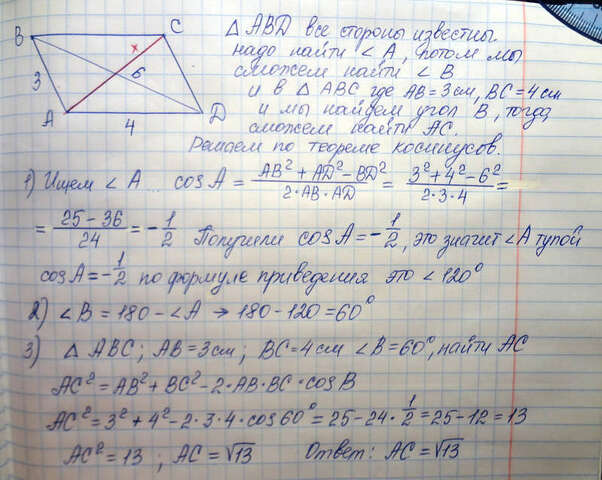 B C
x
3 6
A D
4
△ ABD все стороны известны
надо найти ∠ A, потом мы
сможем найти ∠ B
и в △ ABC где AB = 3 см, BC = 4 см
и мы найдем угол B, тогда
сможем найти AC.
Решаем по теореме косинусов.
1) Ищем ∠ A ... cos A = (AB² + AD² - BD²) / (2·AB·AD) = (3² + 4² - 6²) / (2·3·4) =
= (25 - 36) / 24 = - 1/2 Получили cos A = - 1/2, это значит ∠A тупой
cos A = - 1/2 по формуле приведения это ∠ 120°
2) ∠ B = 180 - ∠ A → 180 - 120 = 60°
3) △ ABC; AB = 3 см; BC = 4 см ∠ B = 60°, найти AC
AC² = AB² + BC² - 2·AB·BC·cos B
AC² = 3² + 4² - 2·3·4·cos 60° = 25 - 24 · 1/2 = 25 - 12 = 13
AC² = 13 ; AC = √13 Ответ: AC = √13